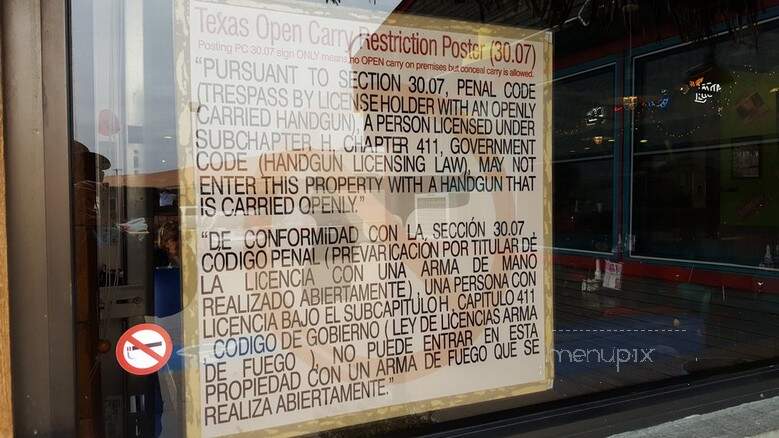 Texas Open Carry Restriction Poster (30.07)
Posting PC 30.07 sign ONLY means no OPEN carry on premises but conceal carry is allowed.
"PURSUANT TO SECTION 30.07, PENAL CODE
(TRESPASS BY LICENSE HOLDER WITH AN OPENLY
CARRIED HANDGUN) A PERSON LICENSED UNDER
SUBCHAPTER H, CHAPTER 411, GOVERNMENT
CODE (HANDGUN LICENSING LAW), MAY NOT
ENTER THIS PROPERTY WITH A HANDGUN THAT
IS CARRIED OPENLY."
"DE CONFORMiDAD CON LA, SECCIÓN 30.07 ,
CÓDIGO PENAL ( PREVARICACIÓN POR TITULAR DE
LA LICENCIA CON UNA ARMA DE MANO
REALIZADO ABIERTAMENTE) , UNA PERSONA CON
LICENCIA BAJO EL SUBCAPITULO H , CAPITULO 411
, CODIGO DE GOBIERNO ( LEY DE LICENCIAS ARMA
DE FUEGO ) , NO PUEDE ENTRAR EN ESTA
PROPIEDAD CON UN ARMA DE FUEGO QUE SE
REALIZA ABIERTAMENTE."
menupix